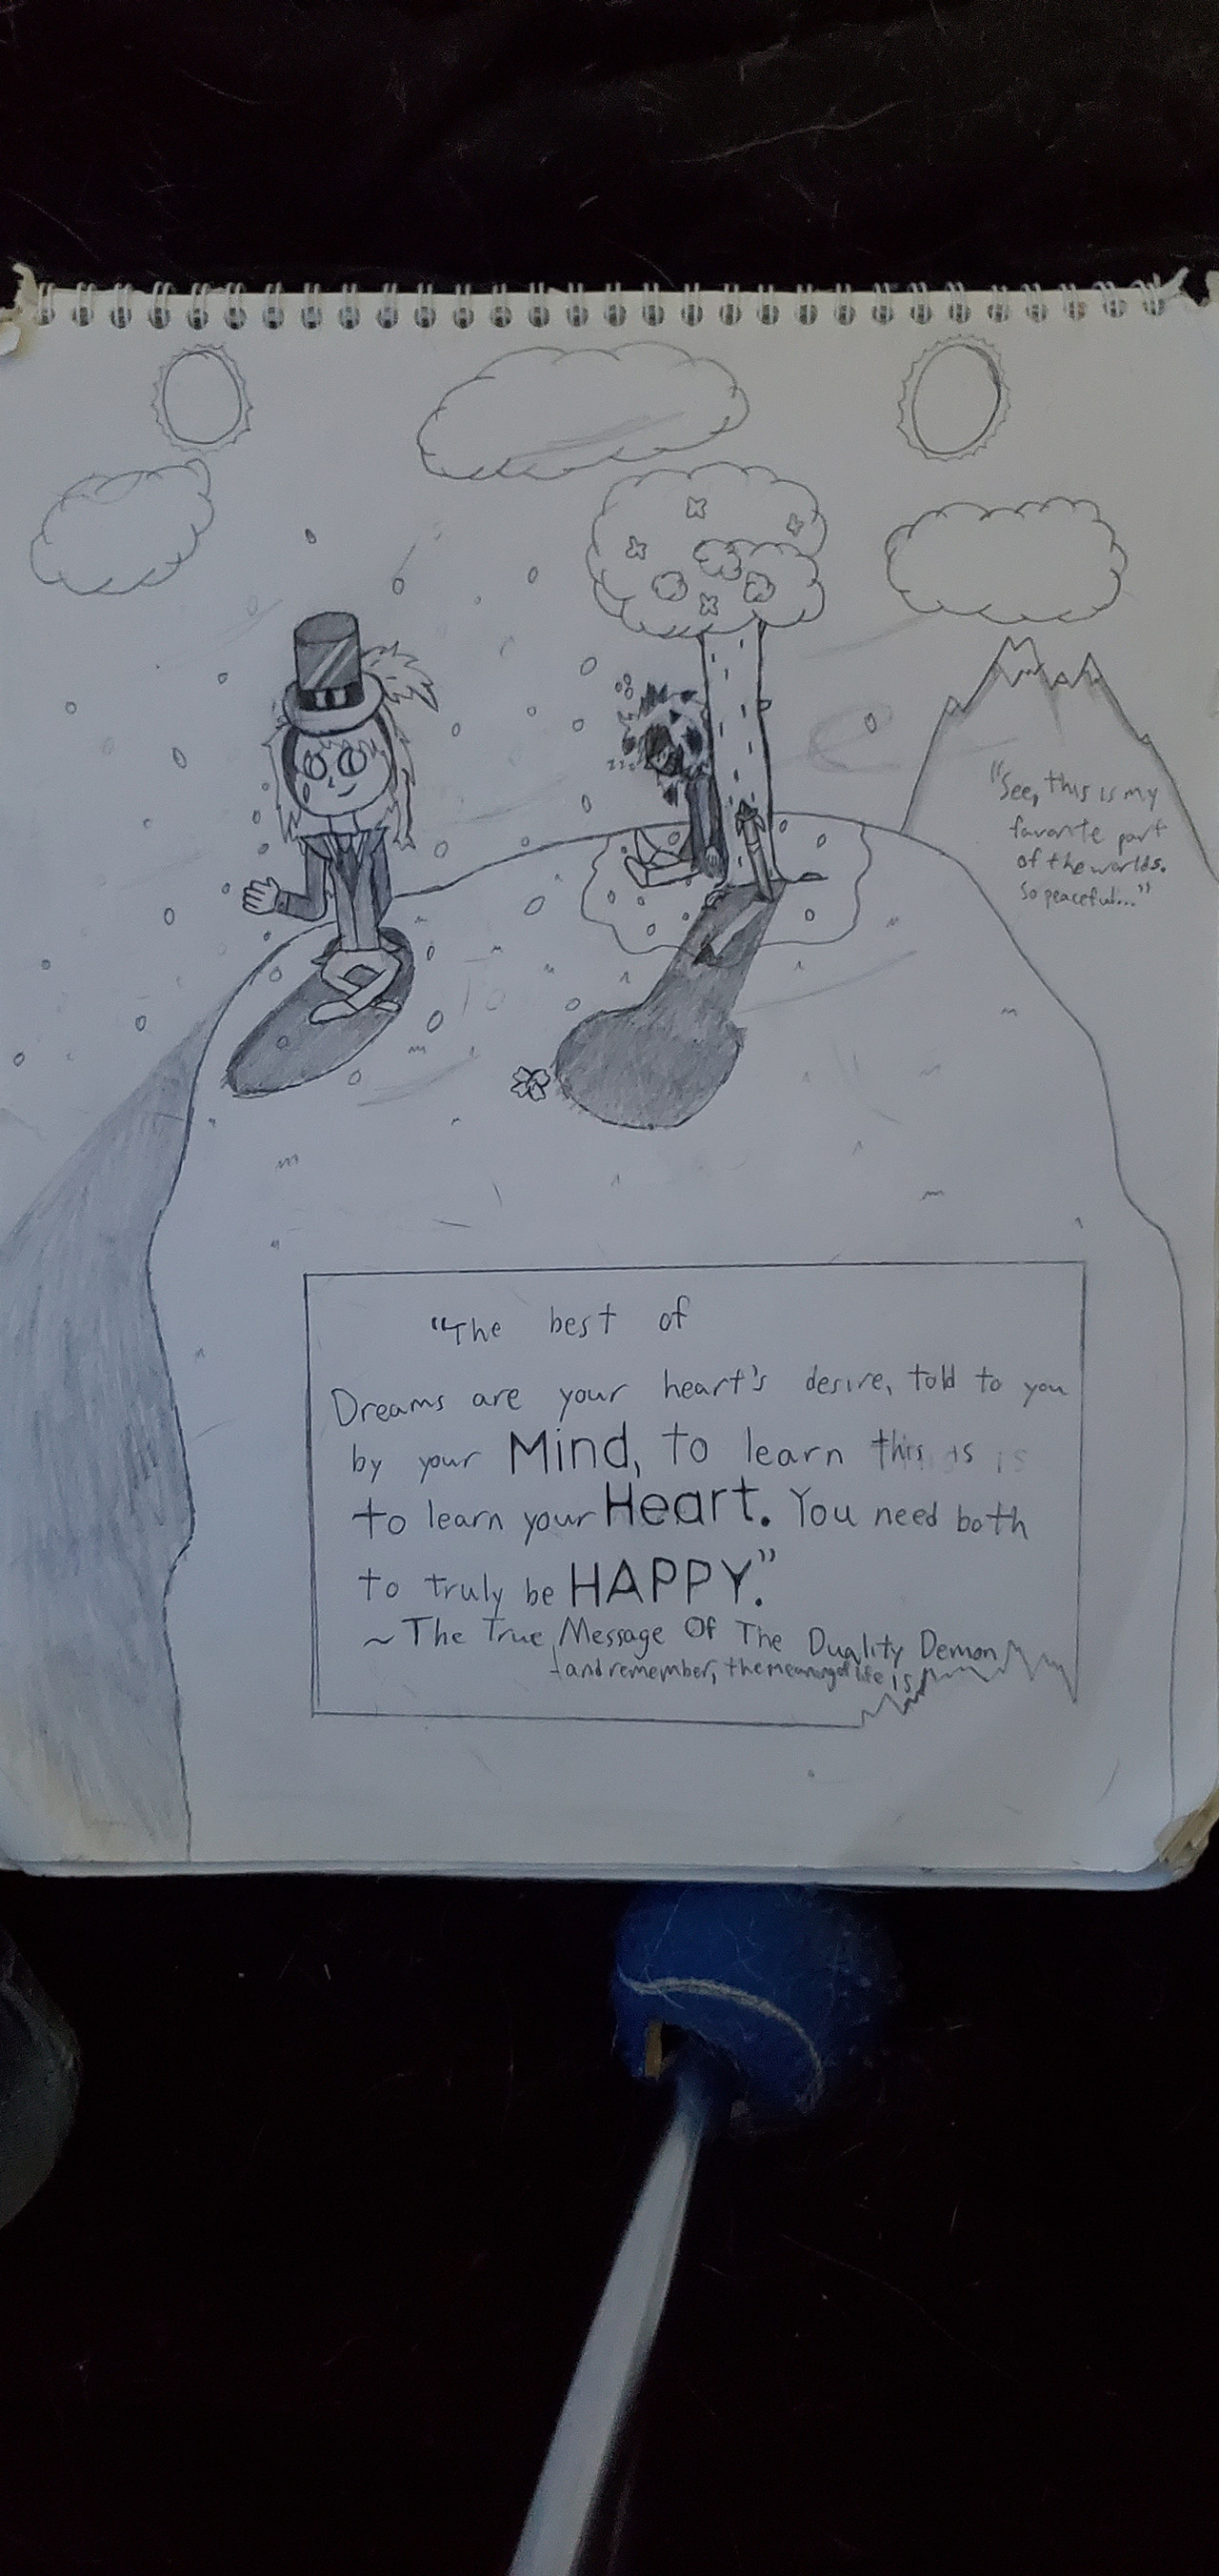 zzz
"See, this is my
favorite part
of the worlds.
So peaceful..."
"The best of
Dreams are your heart's desire, told to you
by your Mind, to learn this is is
to learn your Heart. You need both
to truly be HAPPY."
~The True Message Of The Duality Demon
and remember, the meaning of life is